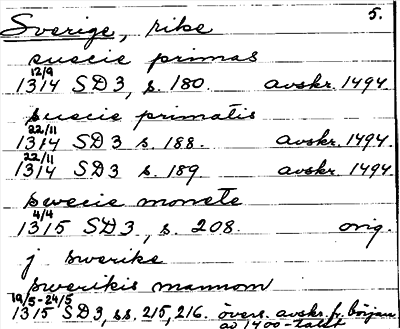 5.
Sverige, rike
suecie primas
12/9
1314 SD 3, s. 180. avskr. 1494.
suecie primatis
22/11
1314 SD 3 s. 188. avskr. 1494.
22/11
1314 SD 3 s. 189. avskr. 1494.
swecie monete
4/4
1315 SD 3, s. 208. orig.
j swerike
swerikis mannom
19/5-24/5
1315 SD 3, ss. 215, 216. övers. avskr. fr. början
av 1400-talet